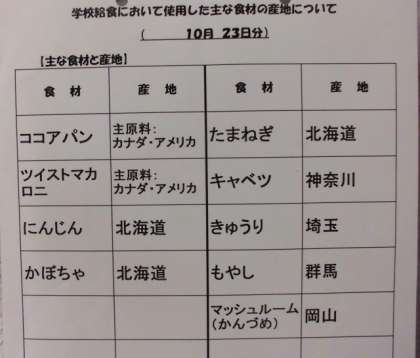 学校給食において使用した主な食材の産地について
(　　　10月 23日分)
【主な食材と産地】
食 材　産 地　食 材　産 地
ココアパン　主原料:　たまねぎ　北海道
カナダ・アメリカ
ツイストマカ　主原料:　キャベツ　神奈川
ロニ　カナダ・アメリカ
にんじん　北海道　きゅうり　埼玉
かぼちゃ　北海道　もやし　群馬
マッシュルーム　岡山
(かんづめ)